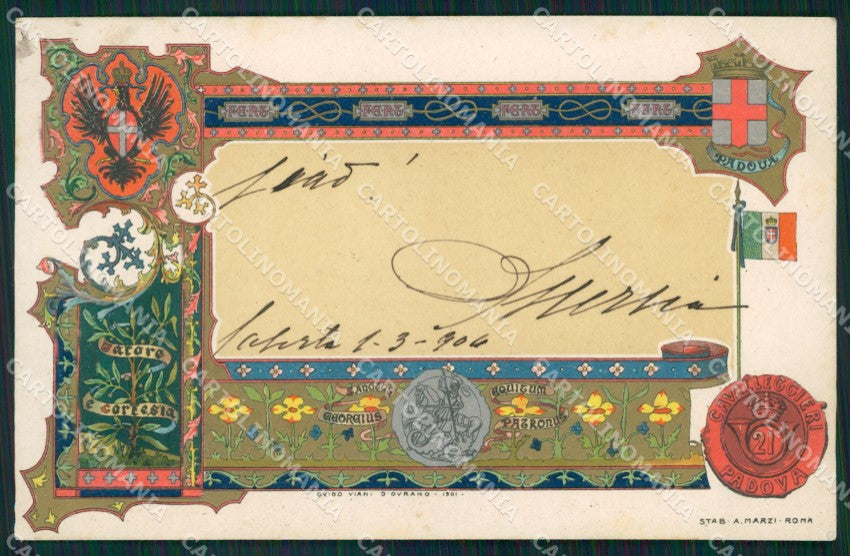 FERT FERT FERT FERT
PADOVA
Valore
e cortesia
SANCTUS EQUITUM
GEORGIUS PATRONUS
CAVALLEGGIERI
21
PADOVA
1-3-904
GUIDO VIANI D'OVRANO · 1901 ·
STAB · A. MARZI · ROMA
CARTOLINOMANIA